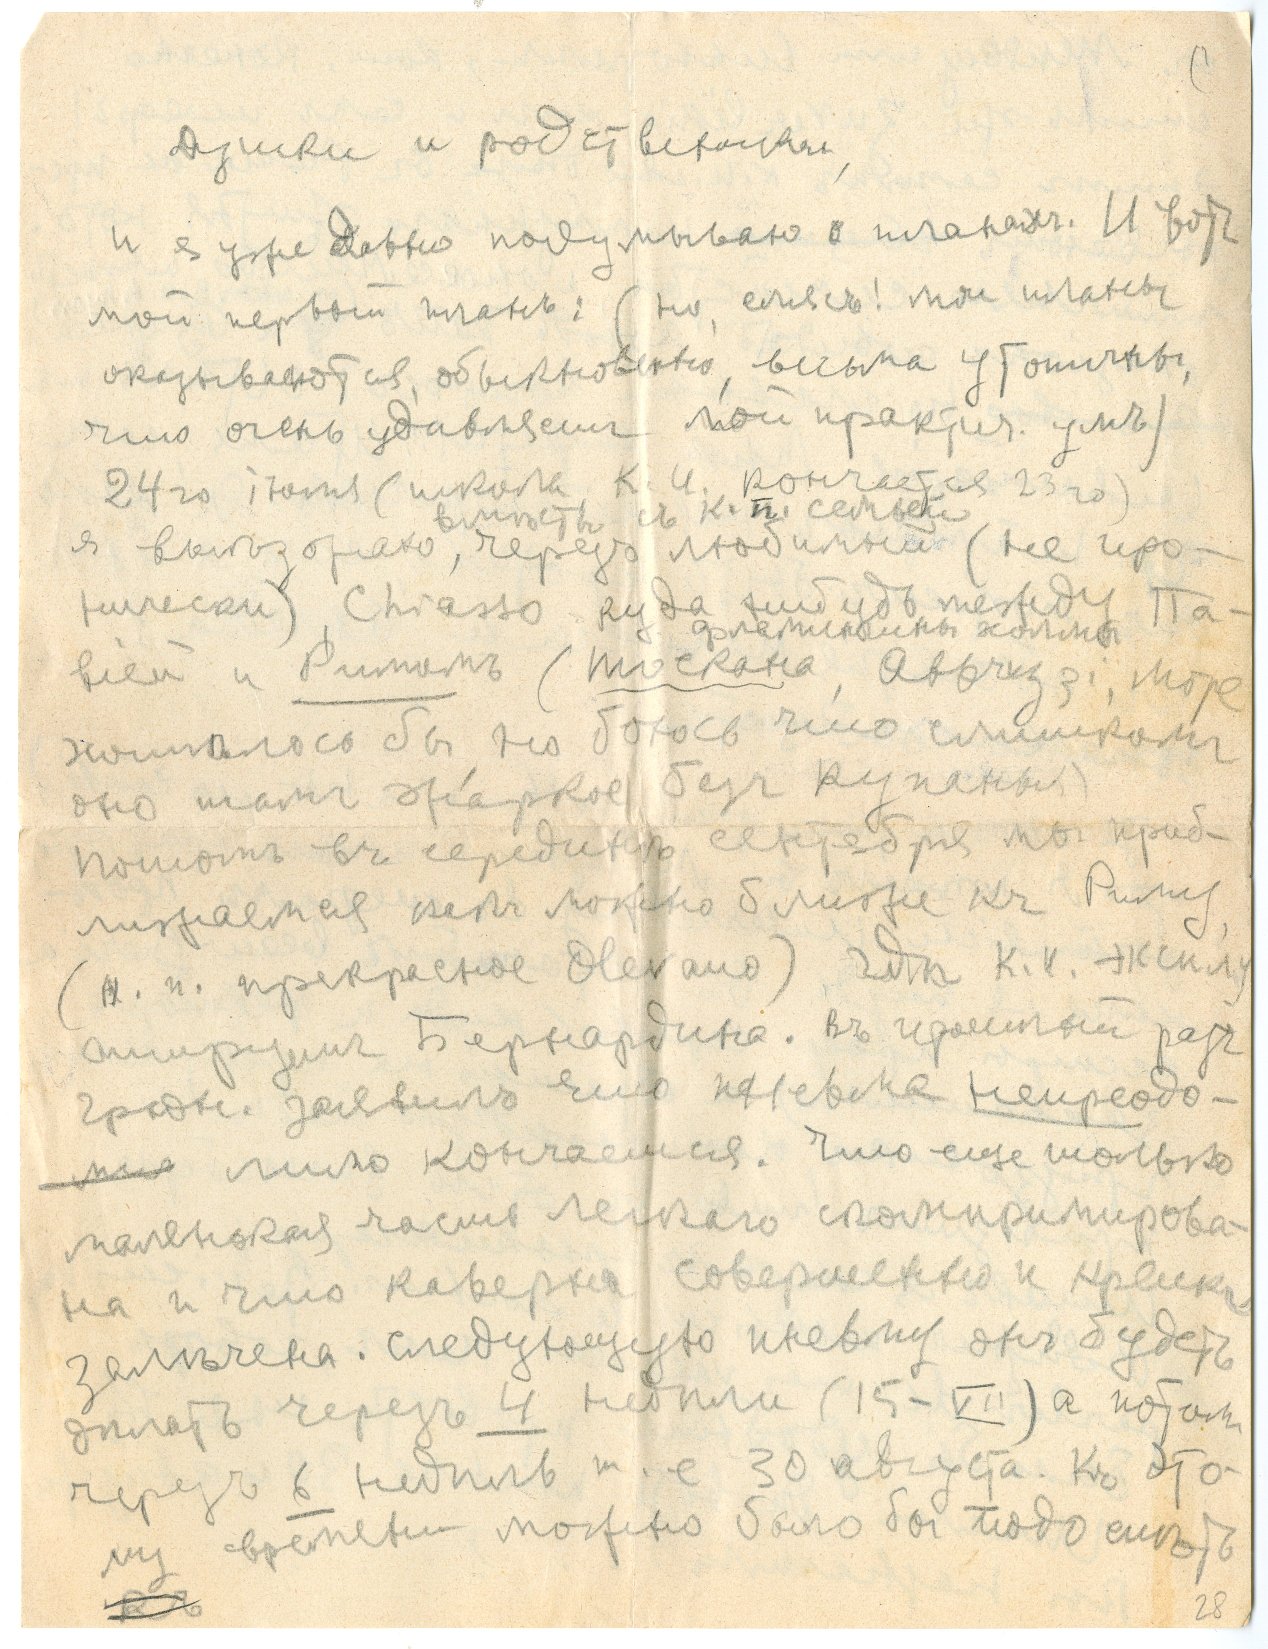 и родственники,
и я уже давно подумываю о планахъ. И вотъ
мой первый планъ: (но, смѣясь! мои планы
оказываются, обыкновенно, весьма утопичны,
что очень удивляетъ мой практич. умъ)
24го іюля (школа К. И. кончается 23го)
вмѣстѣ съ К. П. семьей
я выѣзжаю, черезъ любимый (не иро-
нически) Chiasso куда нибудь между Па-
віей и Римомъ (Тоскана, Абруззі, море
холмы
хотѣлось бы, но боюсь что слишкомъ
оно тамъ жаркое безъ купанья)
Потомъ въ серединѣ сентебря мы приб-
лижаемся какъ можно ближе къ Риму,
(н. п. прекрасное Olevano) гдѣ К. И.
Бернардина. Въ прошлый разъ
заявилъ что пневма непреодо-
лимо кончается. Что еще только
маленькая часть легкаго скомпримирова-
на и что каверна совершенно и крепко
залѣчена. Следующую пневму онъ будетъ
дѣлать черезъ 4 недѣли (15-VII) а потомъ
черезъ 6 недѣль т. е 30 августа. Къ это-
му времени можно было бы подо
къ
28